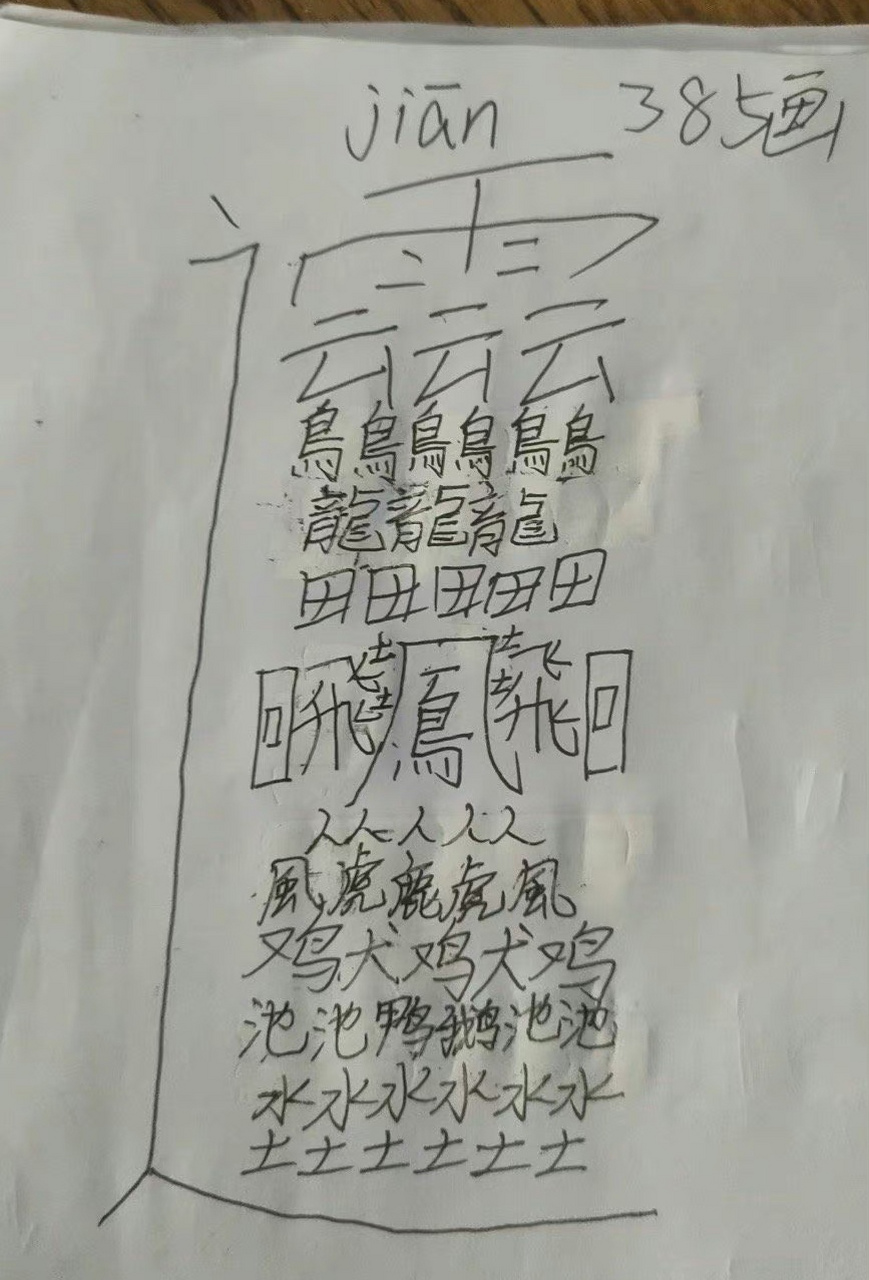 jiān 385画
云云云
鳥鳥鳥鳥鳥鳥
龍龍龍
田田田田田
回飛鳳飛回
人人人人人
風虎鹿虎風
鸡犬鸡犬鸡
池池鸭鹅池池
水水水水水水
土土土土土土